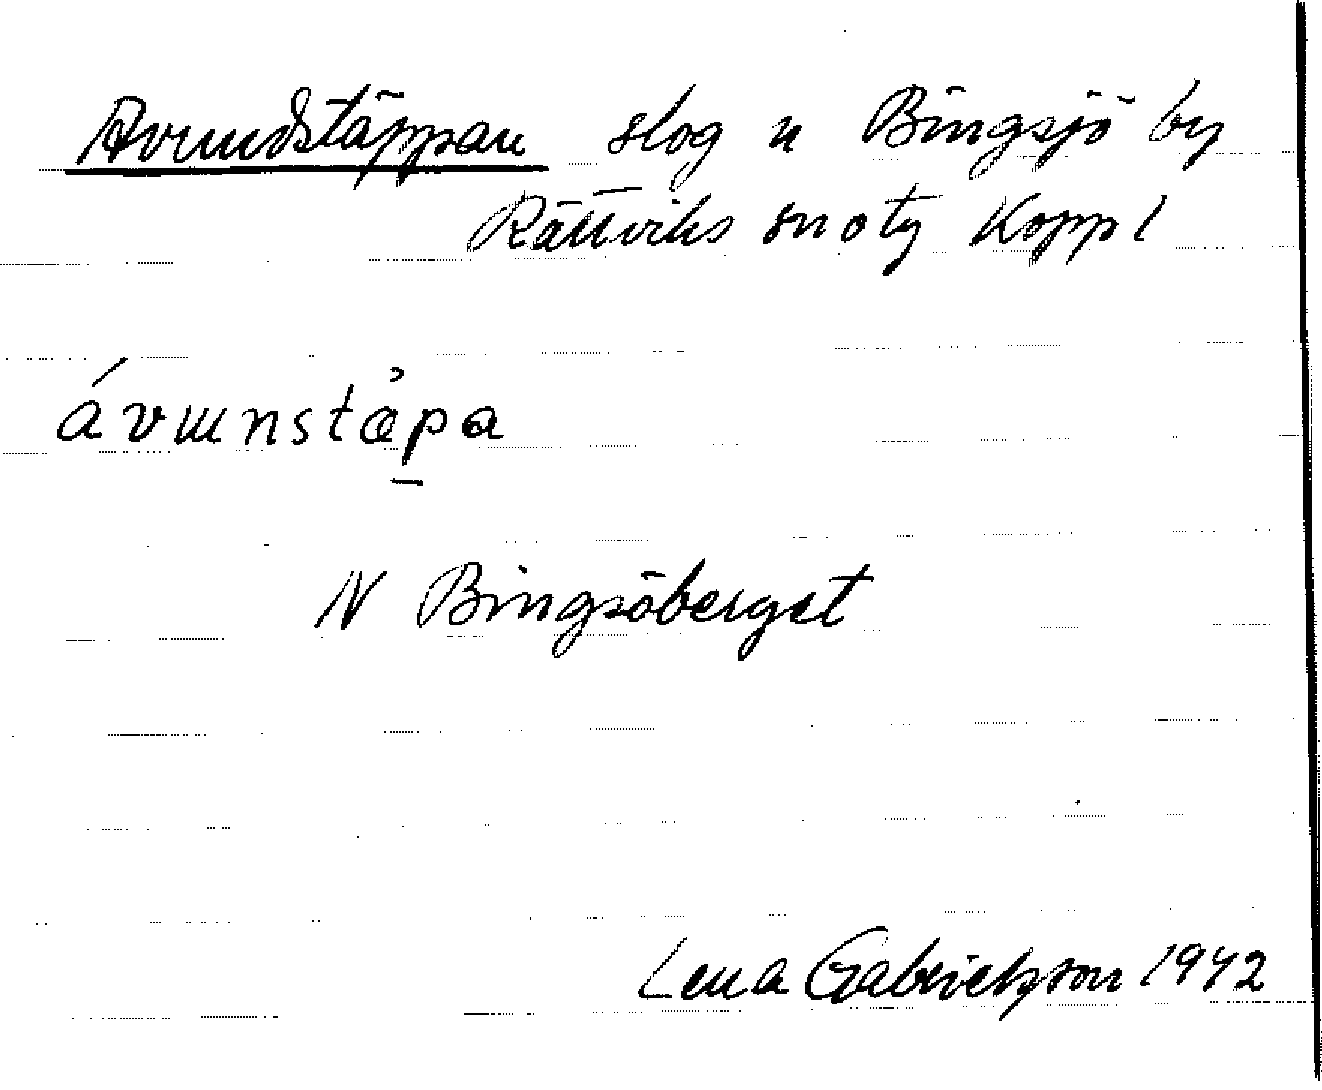 Avundstäppan slog u Bingsjö by
Rättviks sn o tg Koppl
ávɯnstǽpa
N Bingsöberget
Lena Gabrielsson 1942